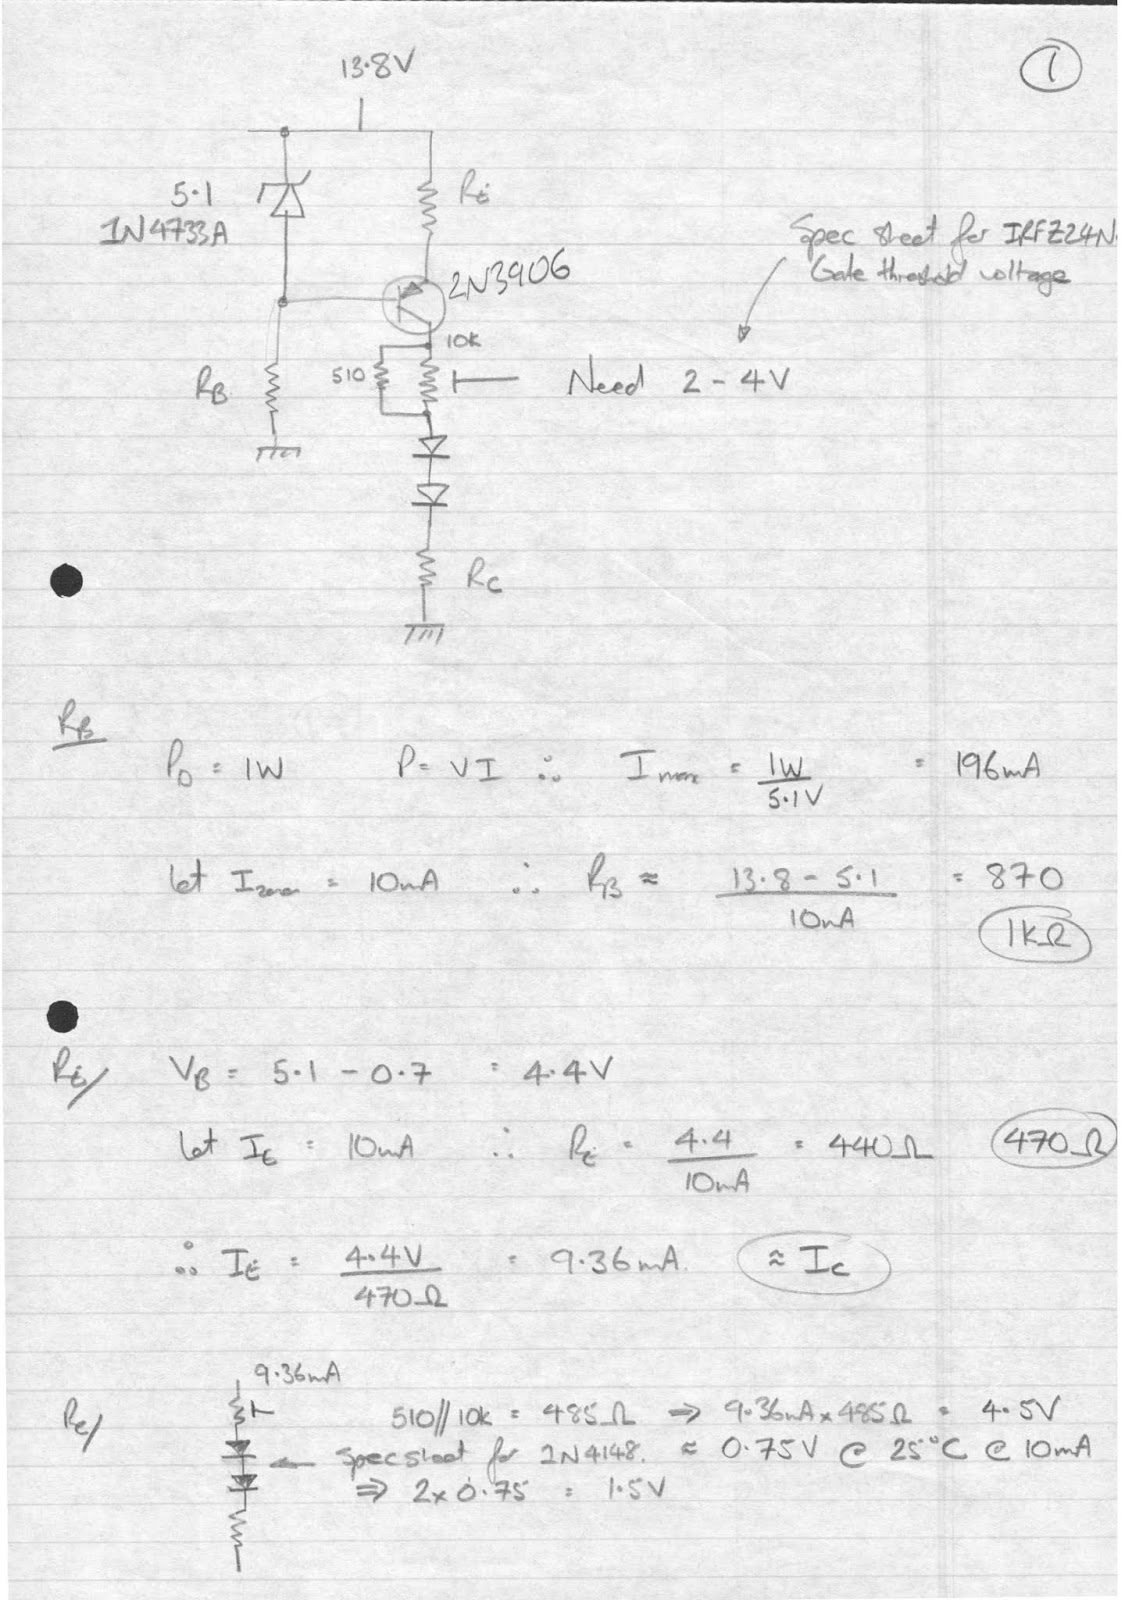 13.8V
1
5.1
1N4733A
RE
Spec sheet for IRFZ24N.
Gate threshold voltage
2N3906
10k
510
Need 2 - 4V
RB
RC
RB
PD = 1W P = VI ∴ Imax = 1W/5.1V = 196mA
let Izener = 10mA ∴ RB ≈ 13.8 - 5.1/10mA = 870
1kΩ
RE/ VB = 5.1 - 0.7 = 4.4V
let IE = 10mA ∴ RE = 4.4/10mA = 440Ω 470Ω
∴ IE = 4.4V/470Ω = 9.36mA. ≈ IC
9.36mA
RC/ 510//10k = 485Ω ⇒ 9.36mA x 485Ω = 4.5V
Spec sheet for 1N4148. ≈ 0.75V @ 25°C @ 10mA
⇒ 2 x 0.75 = 1.5V